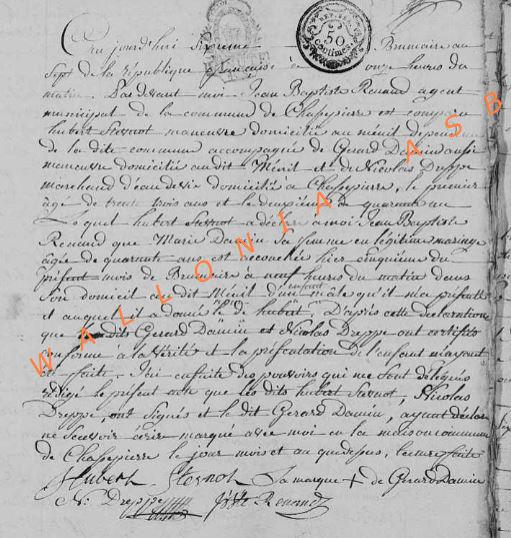 Cejourd'hui sixieme Brumaire an
sept de la république française à onze heures du
matin. Pardevant moi Jean Baptiste Renaud agent
municipal de la commune de Chassepierre est comparu
hubert Sternot maneuvre domicilié au ménil dépendan
de la dite commun accompagné de Gerard Damin aussi
maneuvre domicilié audit Ménil et de Nicolas Dreppe
marchand d'eau de vie domicilié a Chassepierre, le premier
agé de trente trois ans et le deuxième de quarante an
Lequel hubert Sternot a déclaré à moi Jean Baptiste
Renaud que Marie Damin Sa femme en légitime mariage
agée de quarante ans est accouchée hier cinquième du
présent mois de Brumaire à neuf heures du matin dans
Son domicil au dit Ménil d'un enfant mâle qu'il m'a présenté
et auquel il a donné le de hubert. D'après cette déclaration
que les dits Gerard Damin et Nicolas Dreppe ont certifiés
conforme a la vérité et la présentation de l'enfant m'ayant
été faite. J'ai ensuite des pouvoirs qui me sont délégués
rédigé le présent acte que les dits hubert Sternot, Nicolas
Dreppe, ont Signés et le dit Gerard Damin, ayant déclar
ne scavoir écrire marqué avec moi en la maison commun
de Chassepierre le jour mois et an que dessus, lecture faite
Hubert Sternot Sa marque + de Gerard Damin
N: Dreppe JBte Renaud
50
centimes
WALLONIA ASB